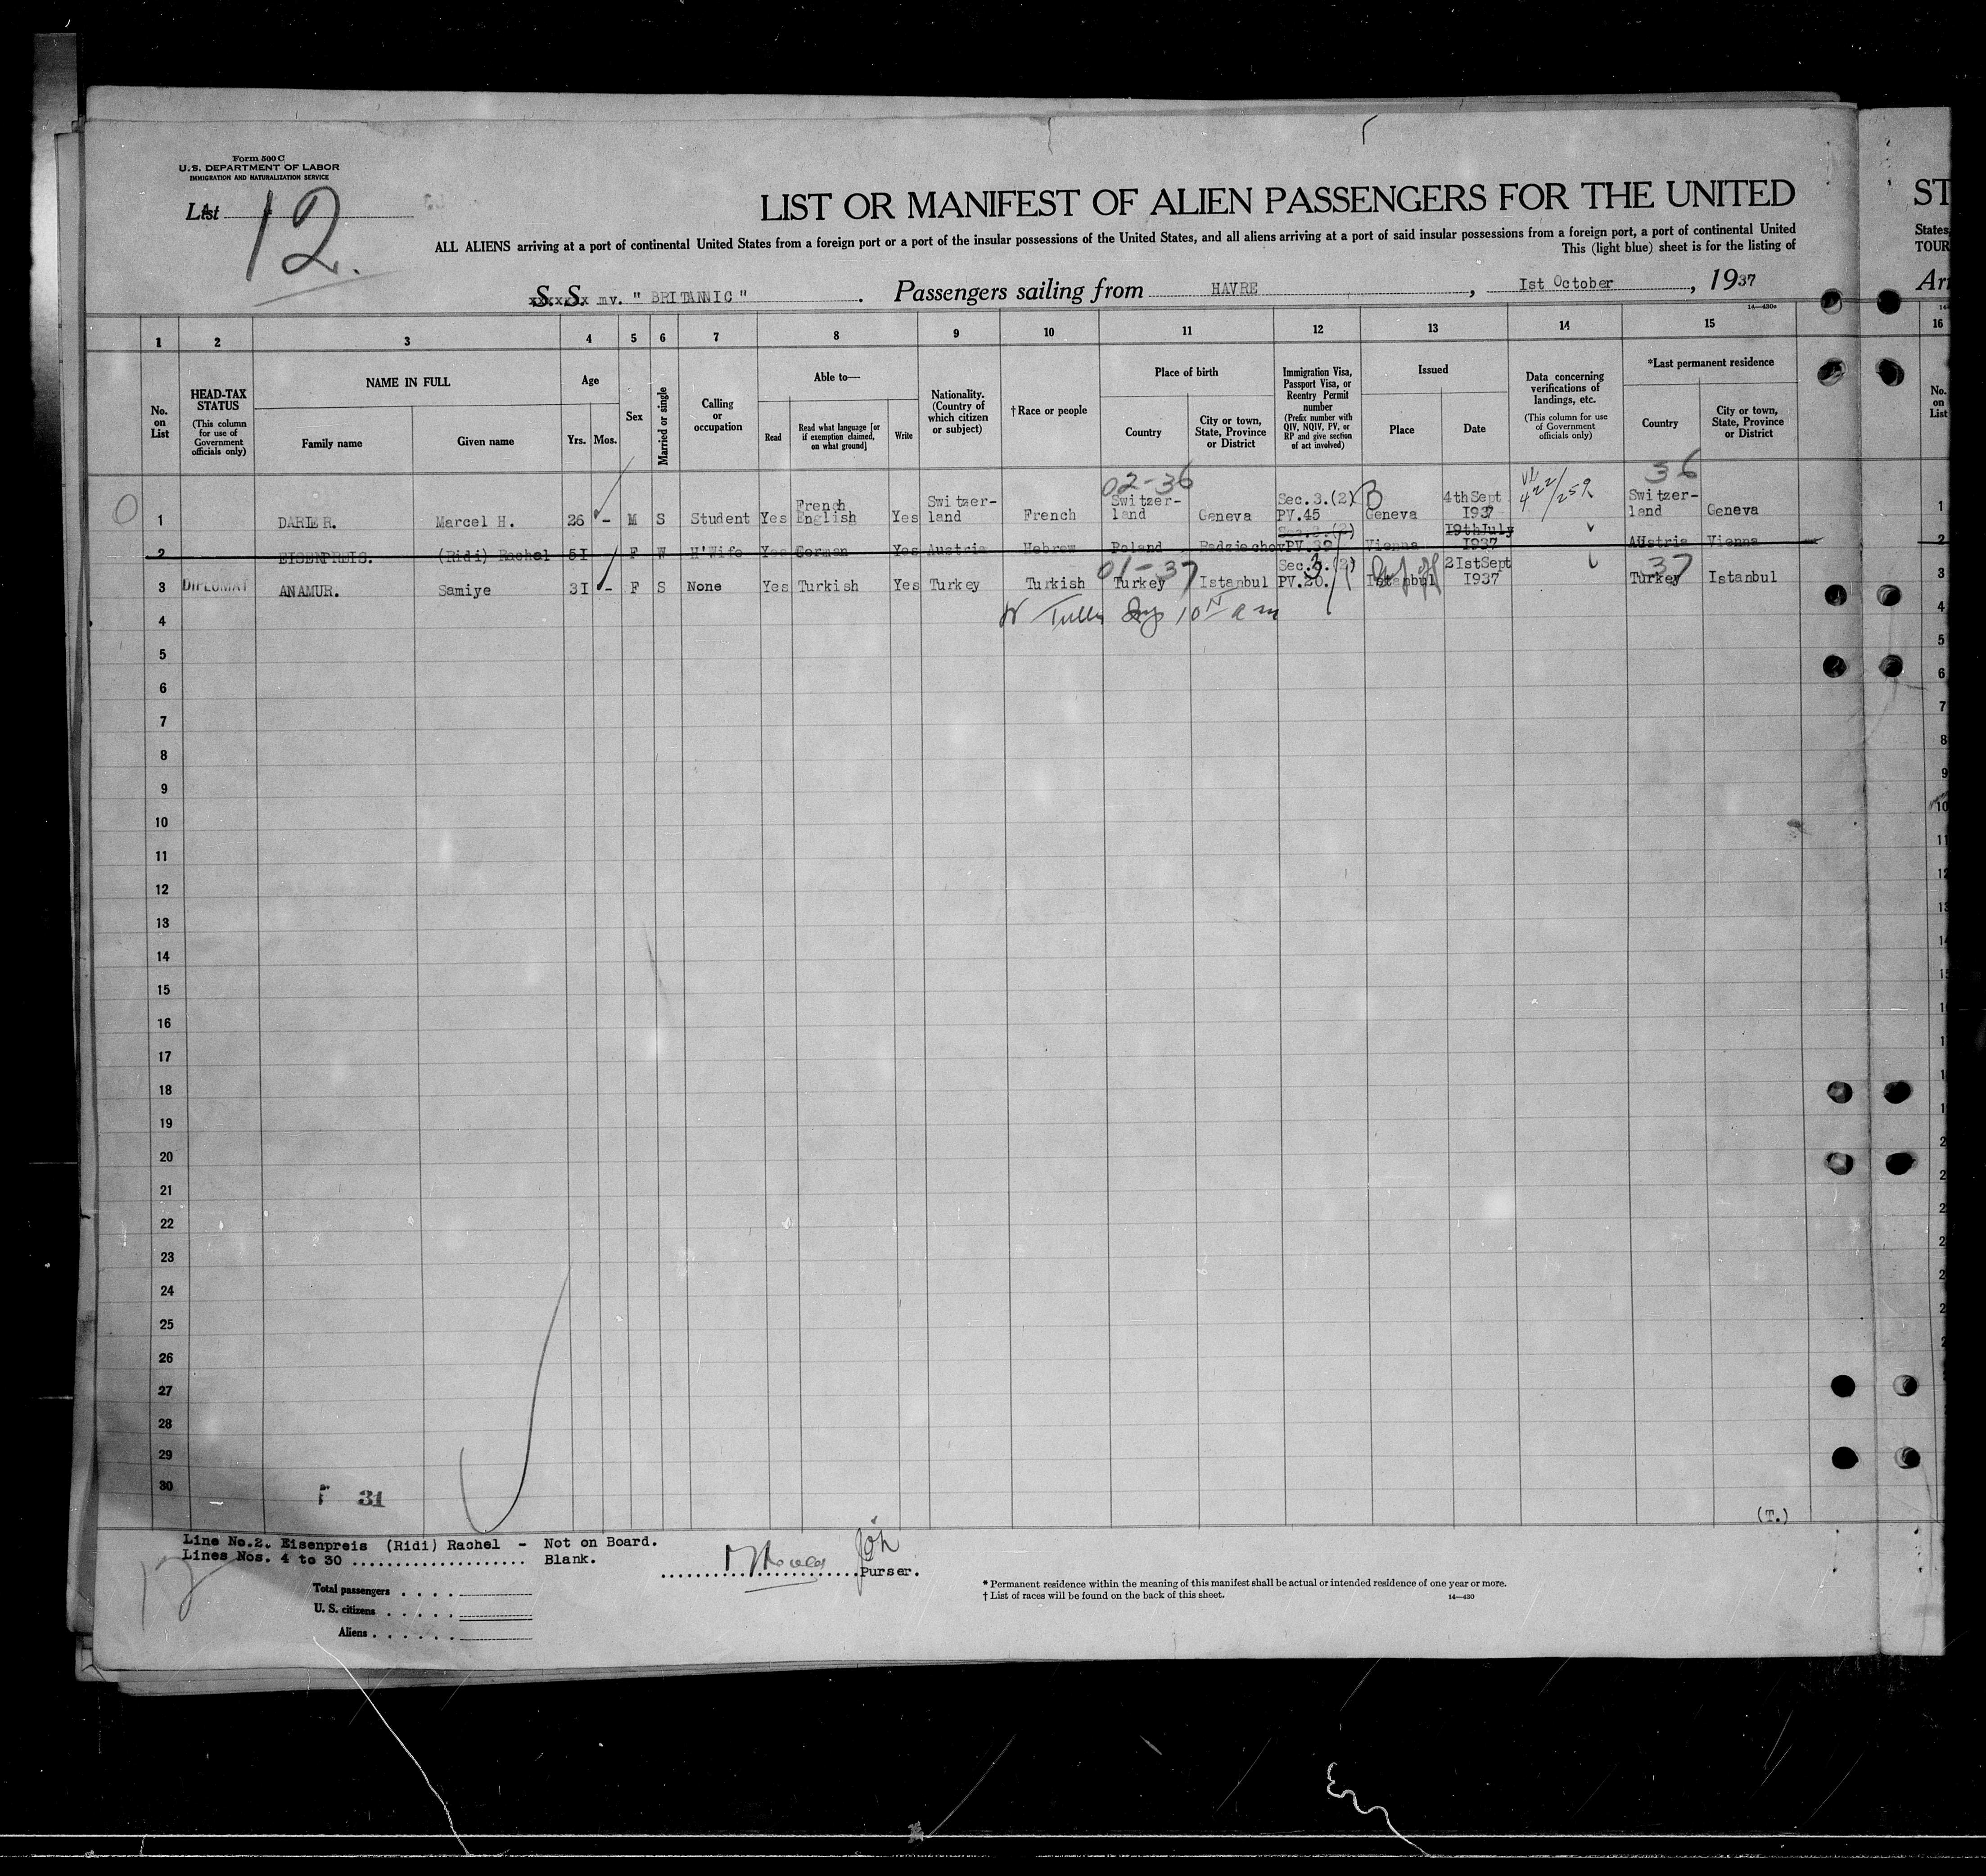 Form 500 C
U.S. DEPARTMENT OF LABOR
IMMIGRATION AND NATURALIZATION SERVICE
List 12.
LIST OR MANIFEST OF ALIEN PASSENGERS FOR THE UNITED
ST
ALL ALIENS arriving at a port of continental United States from a foreign port or a port of the insular possessions of the United States, and all aliens arriving at a port of said insular possessions from a foreign port, a port of continental United
States,
This (light blue) sheet is for the listing of
TOUR
S. S. xxxxxx mv. " BRITANNIC " . Passengers sailing from HAVRE , 1st October , 1937
Arr
14—430c
1 2 3 4 5 6 7 8 9 10 11 12 13 14 15 16
No. on List
HEAD-TAX STATUS
(This column for use of Government officials only)
NAME IN FULL
Family name
Given name
Age
Yrs. Mos.
Sex
Married or single
Calling or occupation
Able to—
Read
Read what language [or if exemption claimed, on what ground]
Write
Nationality. (Country of which citizen or subject)
†Race or people
Place of birth
Country
City or town, State, Province or District
Immigration Visa, Passport Visa, or Reentry Permit number
(Prefix number with QIV, NQIV, PV, or RP and give section of act involved)
Issued
Place
Date
Data concerning verifications of landings, etc.
(This column for use of Government officials only)
*Last permanent residence
Country
City or town, State, Province or District
No. on List
02-36 36
422/259
1 DARIER. Marcel H. 26 - M S Student Yes French English Yes Switzer-land French Switzer-land Geneva Sec.3.(2) PV.45 B Geneva 4thSept 1937 Switzer-land Geneva 1
2 EISENPREIS. (Ridi) Rachel 51 F W H'Wife Yes German Yes Austria Hebrew Poland Radziechov Sec.3.(2) PV.39 Vienna 19thJuly 1937 AUstria Vienna 2
01-37 37
3 DIPLOMAT ANAMUR. Samiye 31 - F S None Yes Turkish Yes Turkey Turkish Turkey Istanbul Sec.3.(2) PV.20. Istanbul 21stSept 1937 Turkey Istanbul 3
4
5
6
7
8
9
10
11
12
13
14
15
16
17
18
19
20
21
22
23
24
25
26
27
28
29
30
31
(T.)
Line No.2. Eisenpreis (Ridi) Rachel - Not on Board.
Lines Nos. 4 to 30 ...................... Blank.
Purser.
Total passengers
U. S. citizens
Aliens
* Permanent residence within the meaning of this manifest shall be actual or intended residence of one year or more.
† List of races will be found on the back of this sheet.
14—430